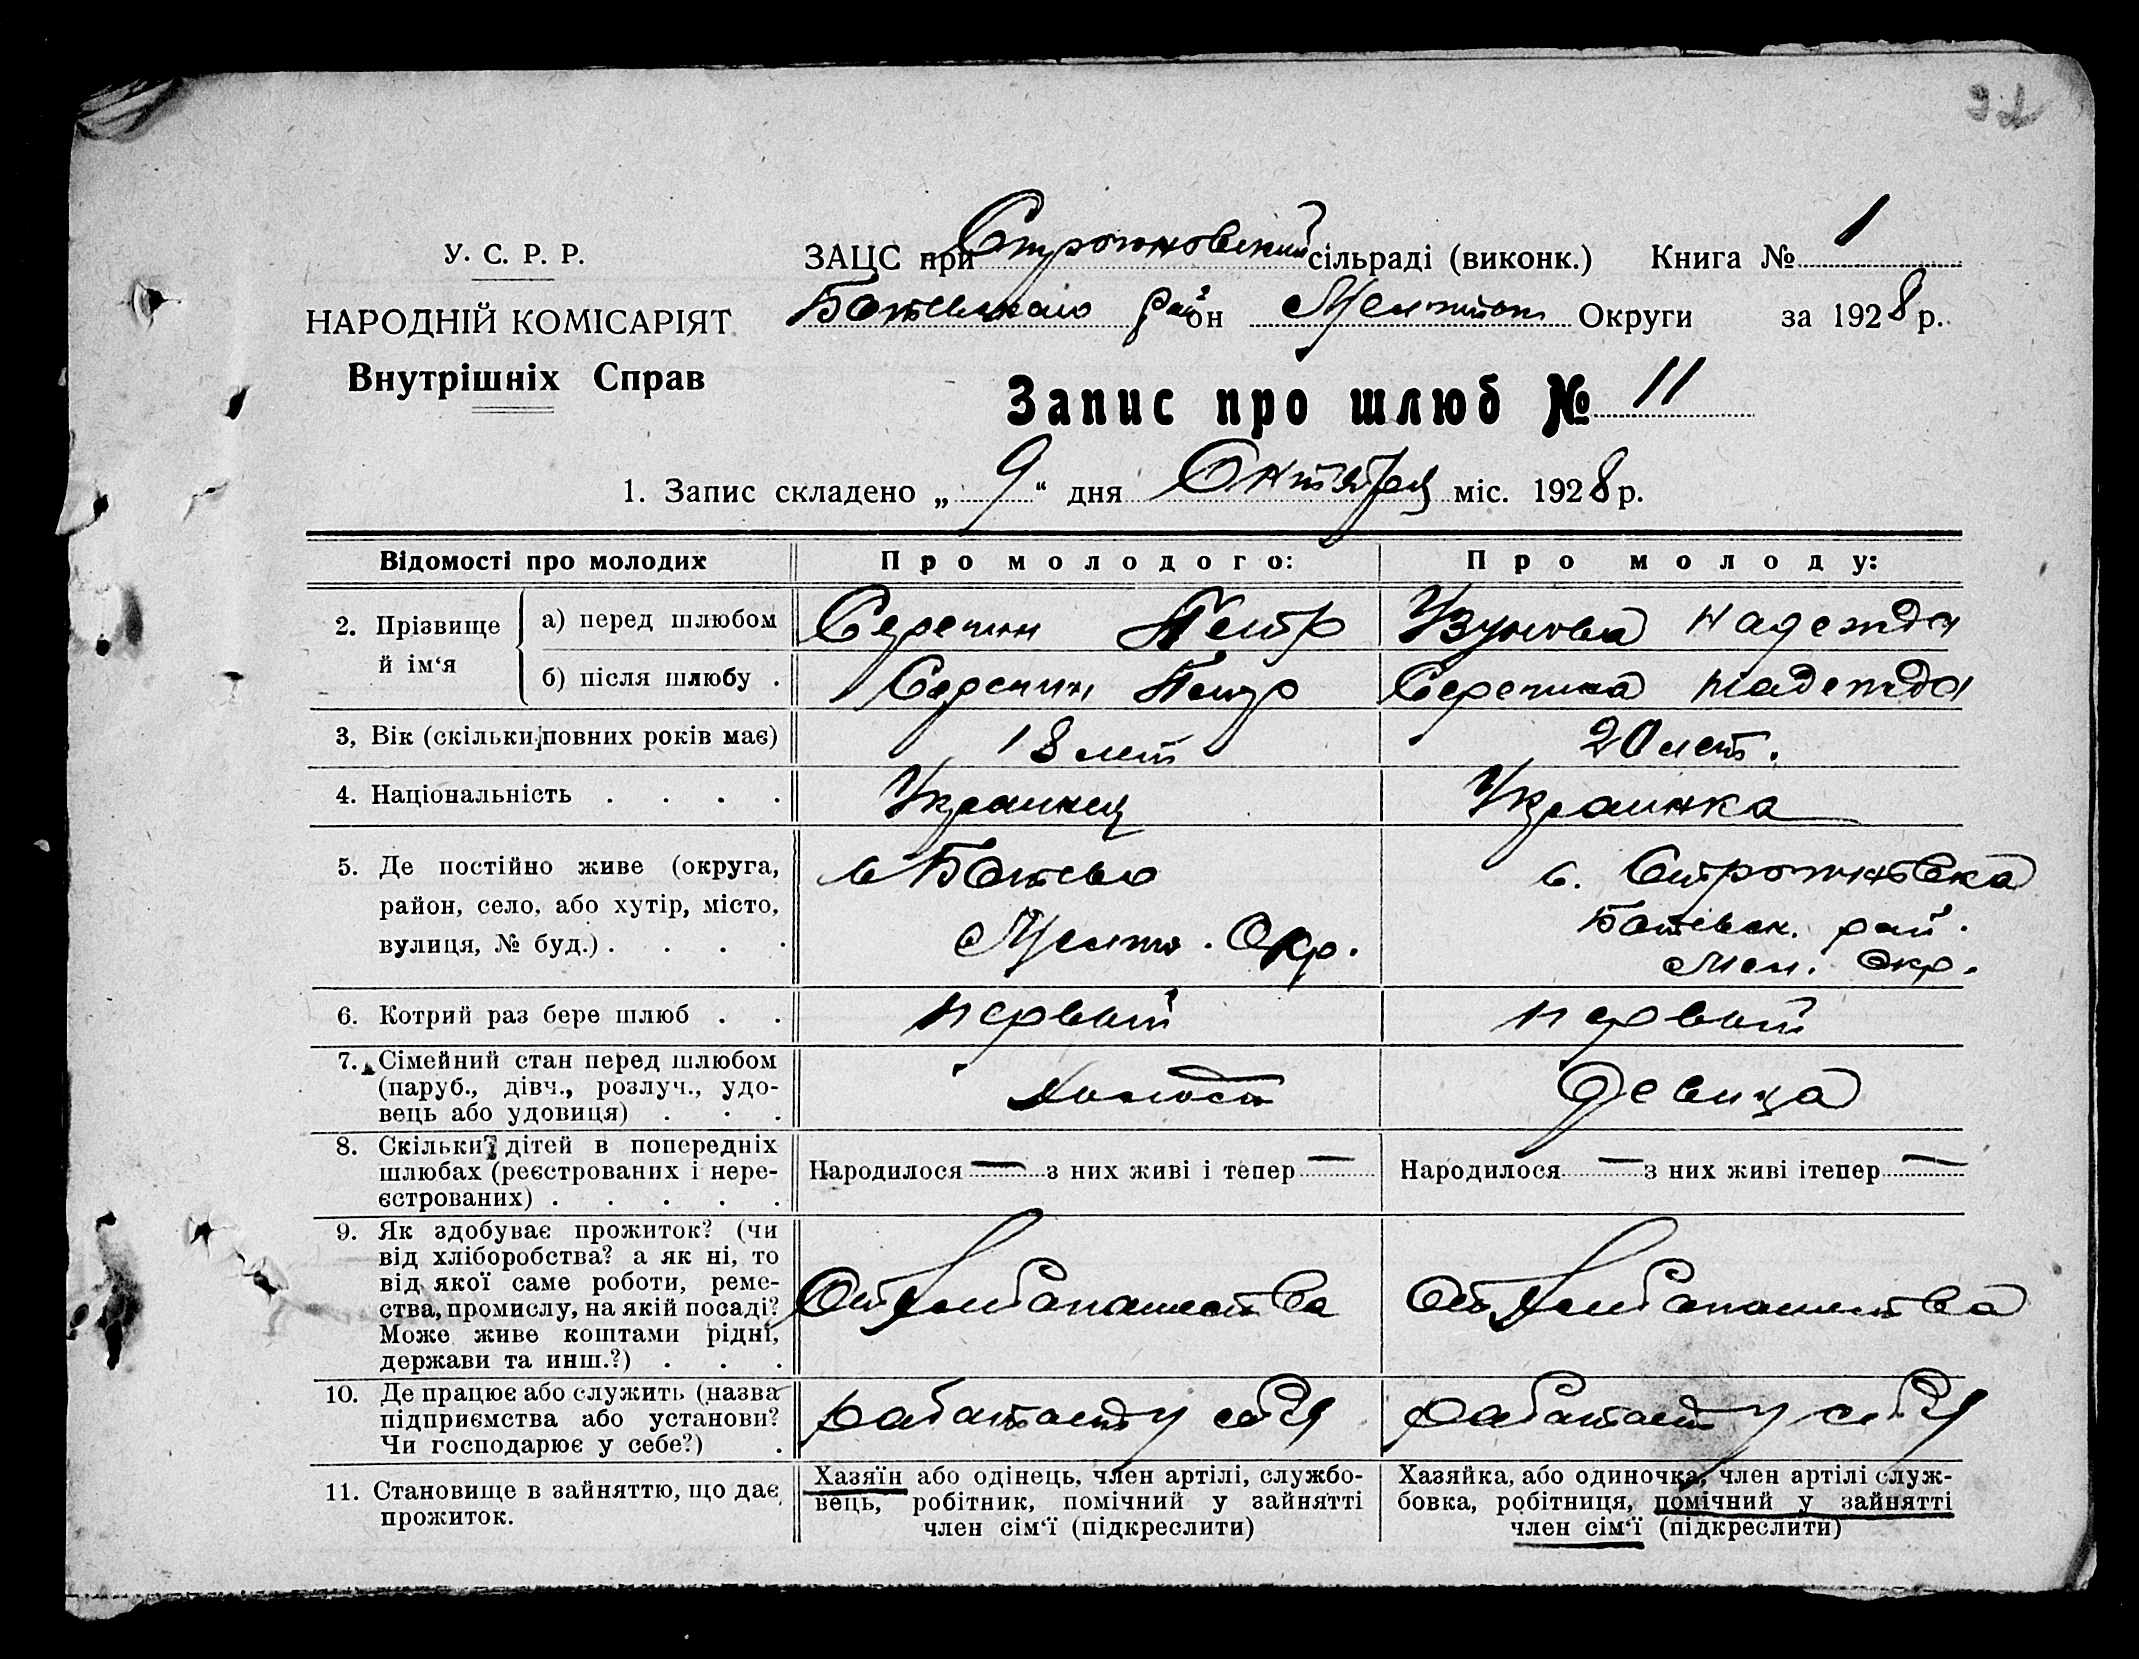 У. С. Р. Р.
НАРОДНІЙ КОМІСАРІЯТ
Внутрішніх Справ
ЗАЦС при Строгоновский сільраді (виконк.) Книга № 1
Ботевского район Мелитоп Округи за 1928 р.
Запис про шлюб № 11
1. Запис складено „ 9 “ дня Октября міс. 1928 р.
Відомості про молодих Про молодого: Про молоду:
2. Прізвище й ім‘я
а) перед шлюбом Серепин Петр Узунова Надежда
б) після шлюбу . Серепин Петр Серепина Надежда
3, Вік (скільки повних років має) 18 лет 20 лет.
4. Національність . . . . Украинец Украинка
5. Де постійно живе (округа,
район, село, або хутір, місто,
вулиця, № буд.) . . . .
с Ботево
Мелит. Окр.
с. Строгоновка
Ботевск. рай.
Мел. Окр.
6. Котрий раз бере шлюб . . первый первый
7. Сімейний стан перед шлюбом
(паруб., дівч., розлуч., удо-
вець або удовиця) . . .
Холост Девица
8. Скільки дітей в попередніх
шлюбах (реєстрованих і нере-
єстрованих) . . . . .
Народилося — з них живі і тепер — Народилося — з них живі ітепер —
9. Як здобуває прожиток? (чи
від хліборобства? а як ні, то
від якої саме роботи, реме-
ства, промислу, на якій посаді?
Може живе коштами рідні,
держави та инш.?) . . .
От Хлебопашества От Хлебопашества
10. Де працює або служить (назва
підприємства або установи?
Чи господарює у себе?) .
работает у себя работает у себя
11. Становище в зайняттю, що дає
прожиток.
Хазяїн або одінець, член артілі, службо-
вець, робітник, помічний у зайнятті
член сім‘ї (підкреслити)
Хазяйка, або одиночка, член артілі служ-
бовка, робітниця, помічний у зайнятті
член сім‘ї (підкреслити)